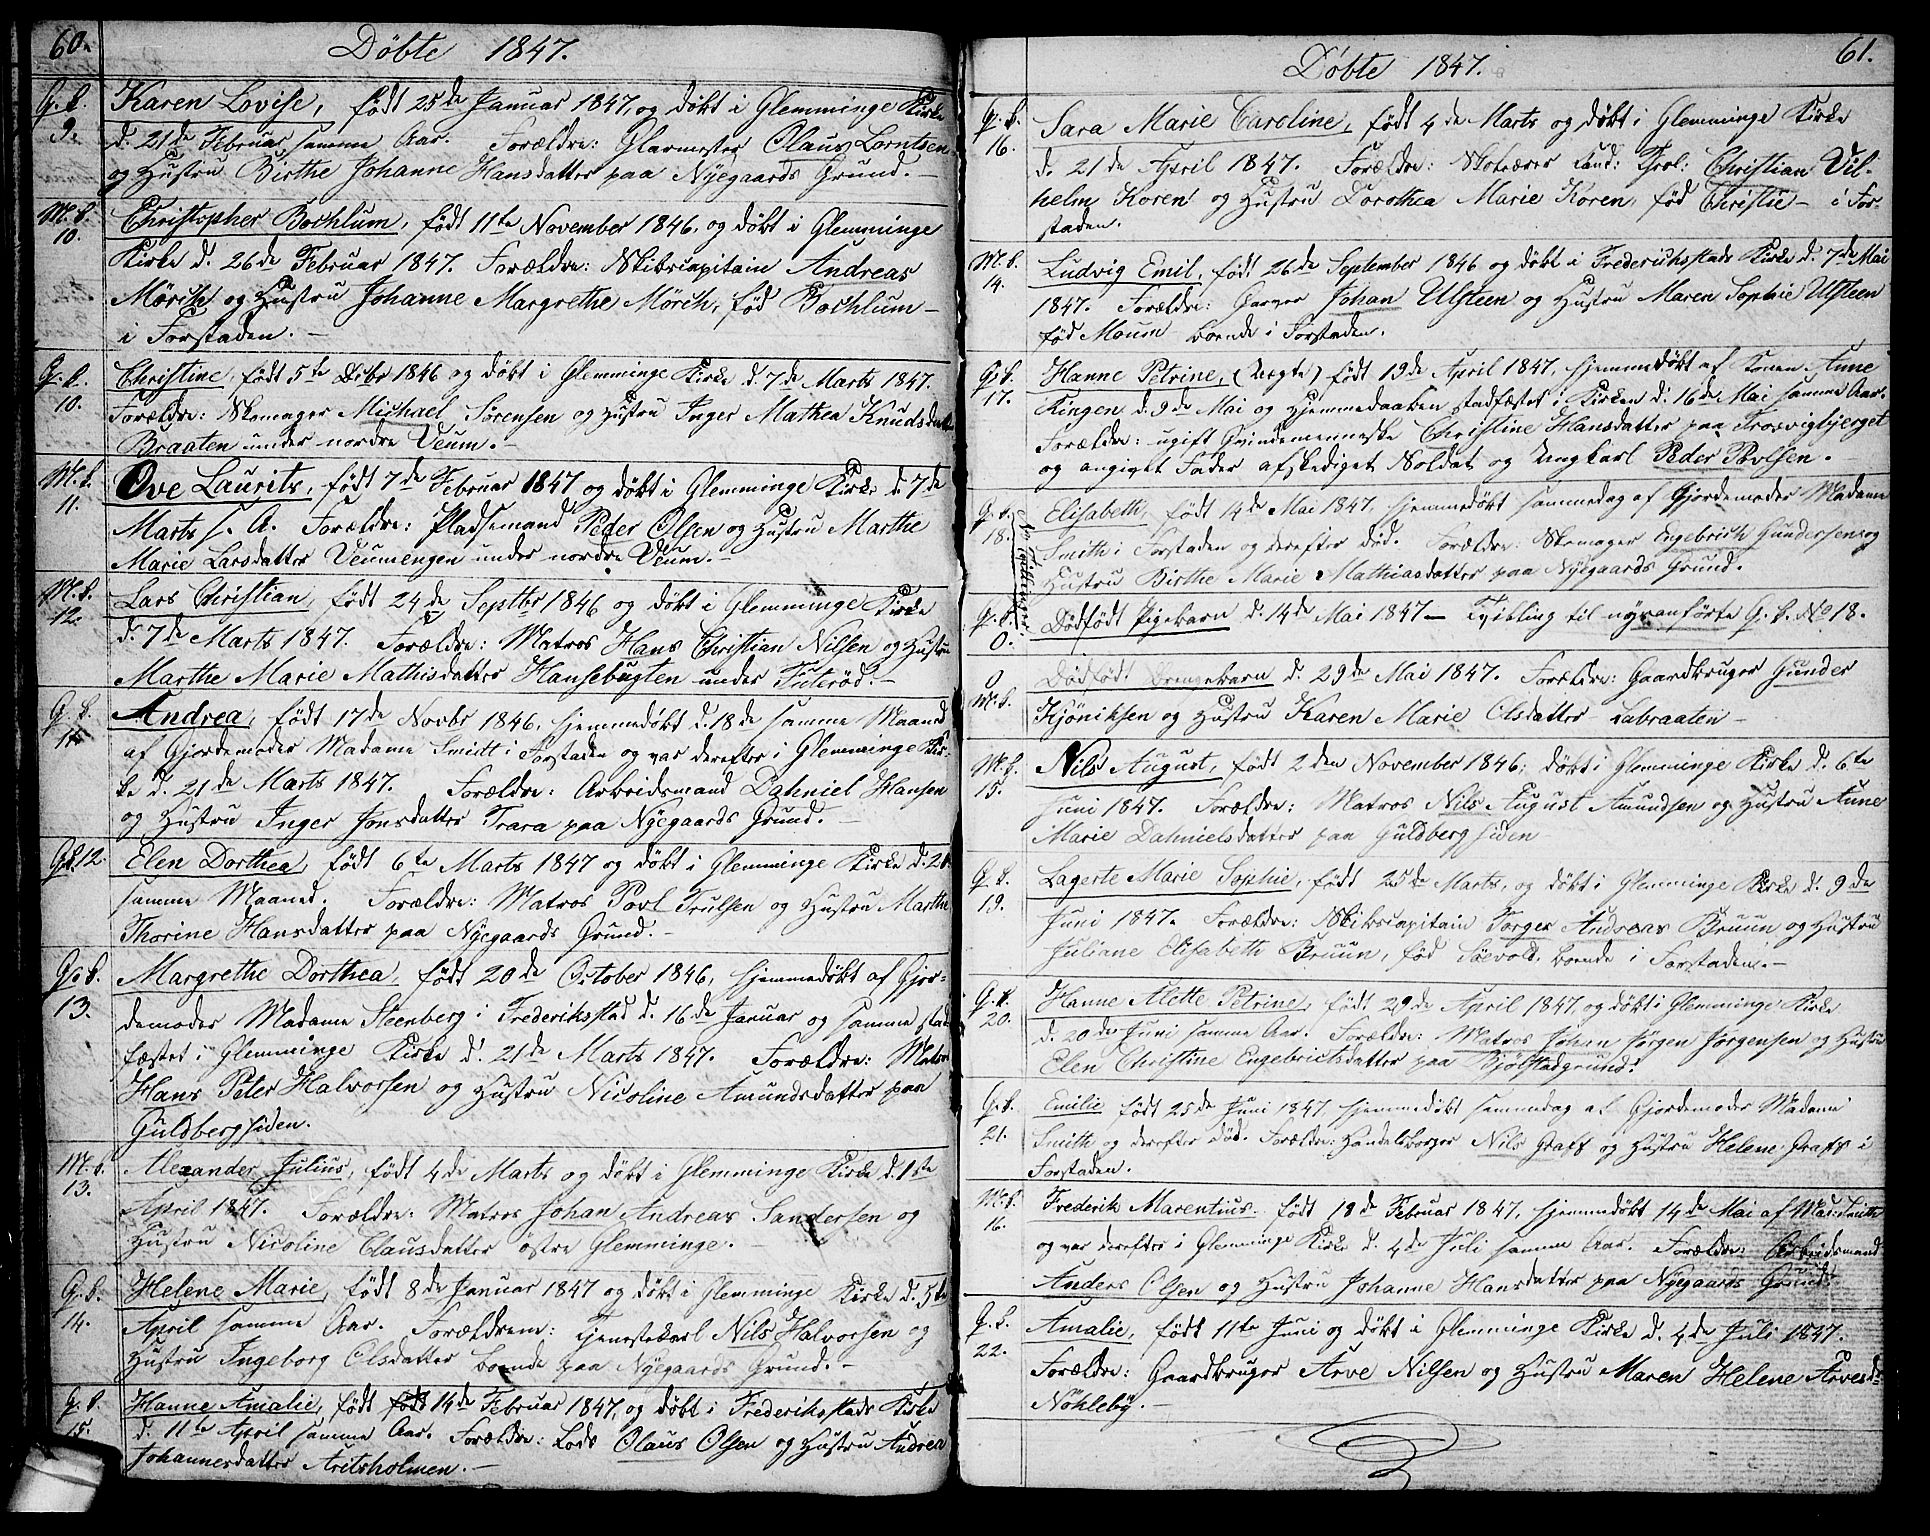 60.
Døbte 1847.
G. b. 9. Karen Lovise, født 25de Januar 1847, og døbt i Glemminge Kirke
d. 21de Februar samme Aar. Forældre: Glarmester Olaus Lorntsen
og Hustru Birthe Johanne Hansdatter paa Nyegaards Grund. –
M. b. 10. Christopher Bochlum, født 11te November 1846, og døbt i Glemminge
Kirke d. 26de Februar 1847. Forældre: Skibscapitain Andreas
Mörch og Hustru Johanne Margrethe Mörch, fød Bochlum –
i Forstaden. –
G. b. 10. Christine, født 5te Decbr 1846 og døbt i Glemminge Kirke d. 7de Marts 1847.
Forældre: Skomager Michael Sørensen og Hustru Inger Mathea Knudsdatter
Braaten under nordre Veum. –
M. b. 11. Ove Laurits, født 7de Februar 1847 og døbt i Glemminge Kirke d. 7de
Marts s. A. Forældre: Pladsemand Peder Olsen og Hustru Marthe
Marie Larsdatter Veumengen under nordre Veum.
M. b. 12. Lars Christian, født 24de Septbr 1846 og døbt i Glemminge Kirke
d. 7de Marts 1847. Forældre: Matros Hans Christian Nilsen og Hustru
Marthe Marie Mathisdatter Hansebugten under Futerød. –
G. b. 11. Andrea, født 17de Novbr 1846, hjemmedøbt d. 18de samme Maaned
af Gjordemoder Madame Smidt i Forstaden og var derefter i Glemminge Kir-
ke d. 21de Marts 1847. Forældre: Arbeidsmand Dahniel Hansen
og Hustru Inger Jonsdatter Trara paa Nyegaards Grund. –
G. b. 12. Elen Dorthea, født 6te Marts 1847 og døbt i Glemminge Kirke d. 21
samme Maaned. Forældre: Matros Povl Trulsen og Hustru Marthe
Thorine Hansdatter paa Nyegaards Grund. –
G. b. 13. Margrethe Dorthea, født 20de October 1846, hjemmedøbt af Gjor-
demoder Madame Steenberg i Frederikstad d. 16de Januar og samme stad-
fæstet i Glemminge Kirke d. 21de Marts 1847. Forældre: Matros
Hans Peter Halvorsen og Hustru Nicoline Amundsdatter paa
Guldbergsiden.
M. b. 13. Alexander Julius, født 4de Marts og døbt i Glemminge Kirke d. 1ste
April 1847. Forældre: Matros Johan Andreas Sandersen og
Hustru Nicoline Clausdatter østre Glemminge. –
G. b. 14. Helene Marie, født 8de Januar 1847 og døbt i Glemminge Kirke d. 5te
April samme Aar. Forældrene: Tjenestekarl Nils Halvorsen og
Hustru Ingeborg Olsdatter boende paa Nyegaards Grund. –
G. b. 15. Hanne Amalie, født født 14de Februar 1847, og døbt i Frederikstads Kirke
d. 11te April samme Aar. Forældre: Lods Olaus Olsen og Hustru Andrea
Johannesdatter Aritsholmen. –
61.
Døbte 1847.
G. b. 16. Sara Marie Caroline, født 4de Marts og døbt i Glemminge Kirke
d. 21de April 1847. Forældre: Skolærer Cand: Theol: Christian Vil-
helm Koren og Hustru Dorothea Marie Koren, fød Christie – i For-
staden.
M. b. 14. Ludvig Emil, født 26de September 1846 og døbt i Frederichsstads Kirke d. 7de Mai
1847. Forældre: Garver Johan Ulsteen og Hustru Maren Sophie Ulsteen
fød Moum boende i Forstaden.
G. b. 17. Hanne Petrine, (uægte) født 19de April 1847, hjemmedøbt af Konen Anne
Kingen d. 9de Mai og Hjemmedaaben stadfæstet i Kirken d. 16de Mai samme Aar.
Forældre: ugift Qvindemenneske Christine Hansdatter paa Trosvigbjerget
og angivet Fader afskediget Soldat og Ungkarl Peder Povlsen. –
G. b. 18. Elisabeth, født 14de Mai 1847, hjemmedøbt sammedag af Gjordemoder Madame
Smith i Forstaden og derefter død. Forældre: Skomager Engebrich Gundersen og
Hustru Birthe Marie Mathiasdatter paa Nyegaards Grund.
G. b. 0. Dødfødt Pigebarn d. 14de Mai 1847 – Tvilling til nysanførte G. b. No 18.
0 M. b. Dødfødt Drengebarn d. 29de Mai 1847. Forældre: Gaardbruger Gunder
Kjöniksen og Hustru Karen Marie Olsdatter Labraaten –
M. b. 15. Nils August, født 2den November 1846, døbt i Glemminge Kirke d. 6te
Juni 1847. Forældre: Matros Nils August Amundsen og Hustru Anne
Marie Dahnielsdatter paa Guldbergsiden
G. b. 19. Lagerte Marie Sophie, født 25de Marts, og døbt i Glemminge Kirke d. 9de
Juni 1847. Forældre: Skibscapitain Torger Andreas Bruun og Hustru
Juliane Elisabeth Bruun, fød Söevold, boende i Forstaden. –
G. b. 20. Hanne Alette Petrine, født 29de April 1847, og døbt i Glemminge Kirke
d. 20de Juni samme Aar. Forældre: Matros Johan Jørgen Jørgensen og Hustru
Elen Christine Engebrichsdatter paa Bjølstadgrund.
G. b. 21. Emilie født 25de Juni 1847, hjemmedøbt sammedag af Gjordemoder Madame
Smith og derefter død. Forældre: Handelsborger Nils Graff og Hustru Helene Graff i
Forstaden.
M. b. 16. Frederik Marentius. født 18de Februar 1847, hjemmedøbt 14de Mai af Mad: Smith
og var derefter i Glemminge Kirke d. 4de Juli samme Aar. Forældre: Arbeidsmand
Anders Olsen og Hustru Johanne Hansdatter paa Nyegaards Grund.
G. b. 22. Amalie, født 11te Juni og døbt i Glemminge Kirke d. 4de Juli 1847.
Forældre: Gaardbruger Arve Nilsen og Hustru Maren Helene Arvesd:
Nøkleby. –